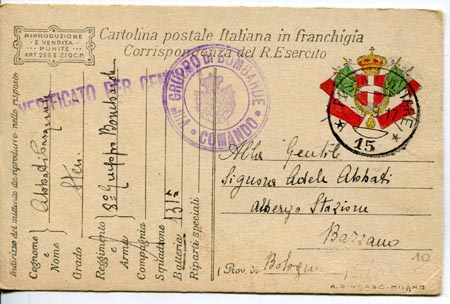 RIPRODUZIONE
E VENDITA
PUNITE
ART. 266 E 270 C.P.
Cartolina postale Italiana in franchigia
Corrispondenza del R. Esercito
VERIFICATO PER CEN
VIII° GRUPPO DI BOMBARDE
COMANDO
15
Indirizzo del mittente da riprodurre nella risposta
Cognome e Nome Abbati
Grado Sten.
Reggimento 8° Gruppo Bombarde
Arma
Compagnia
Squadrone
Batteria 131ª
Riparti speciali
Alla Gentile
Signora Adele Abbati
Albergo Stazione
Bazzano
(Prov. di Bologna
10
MILANO